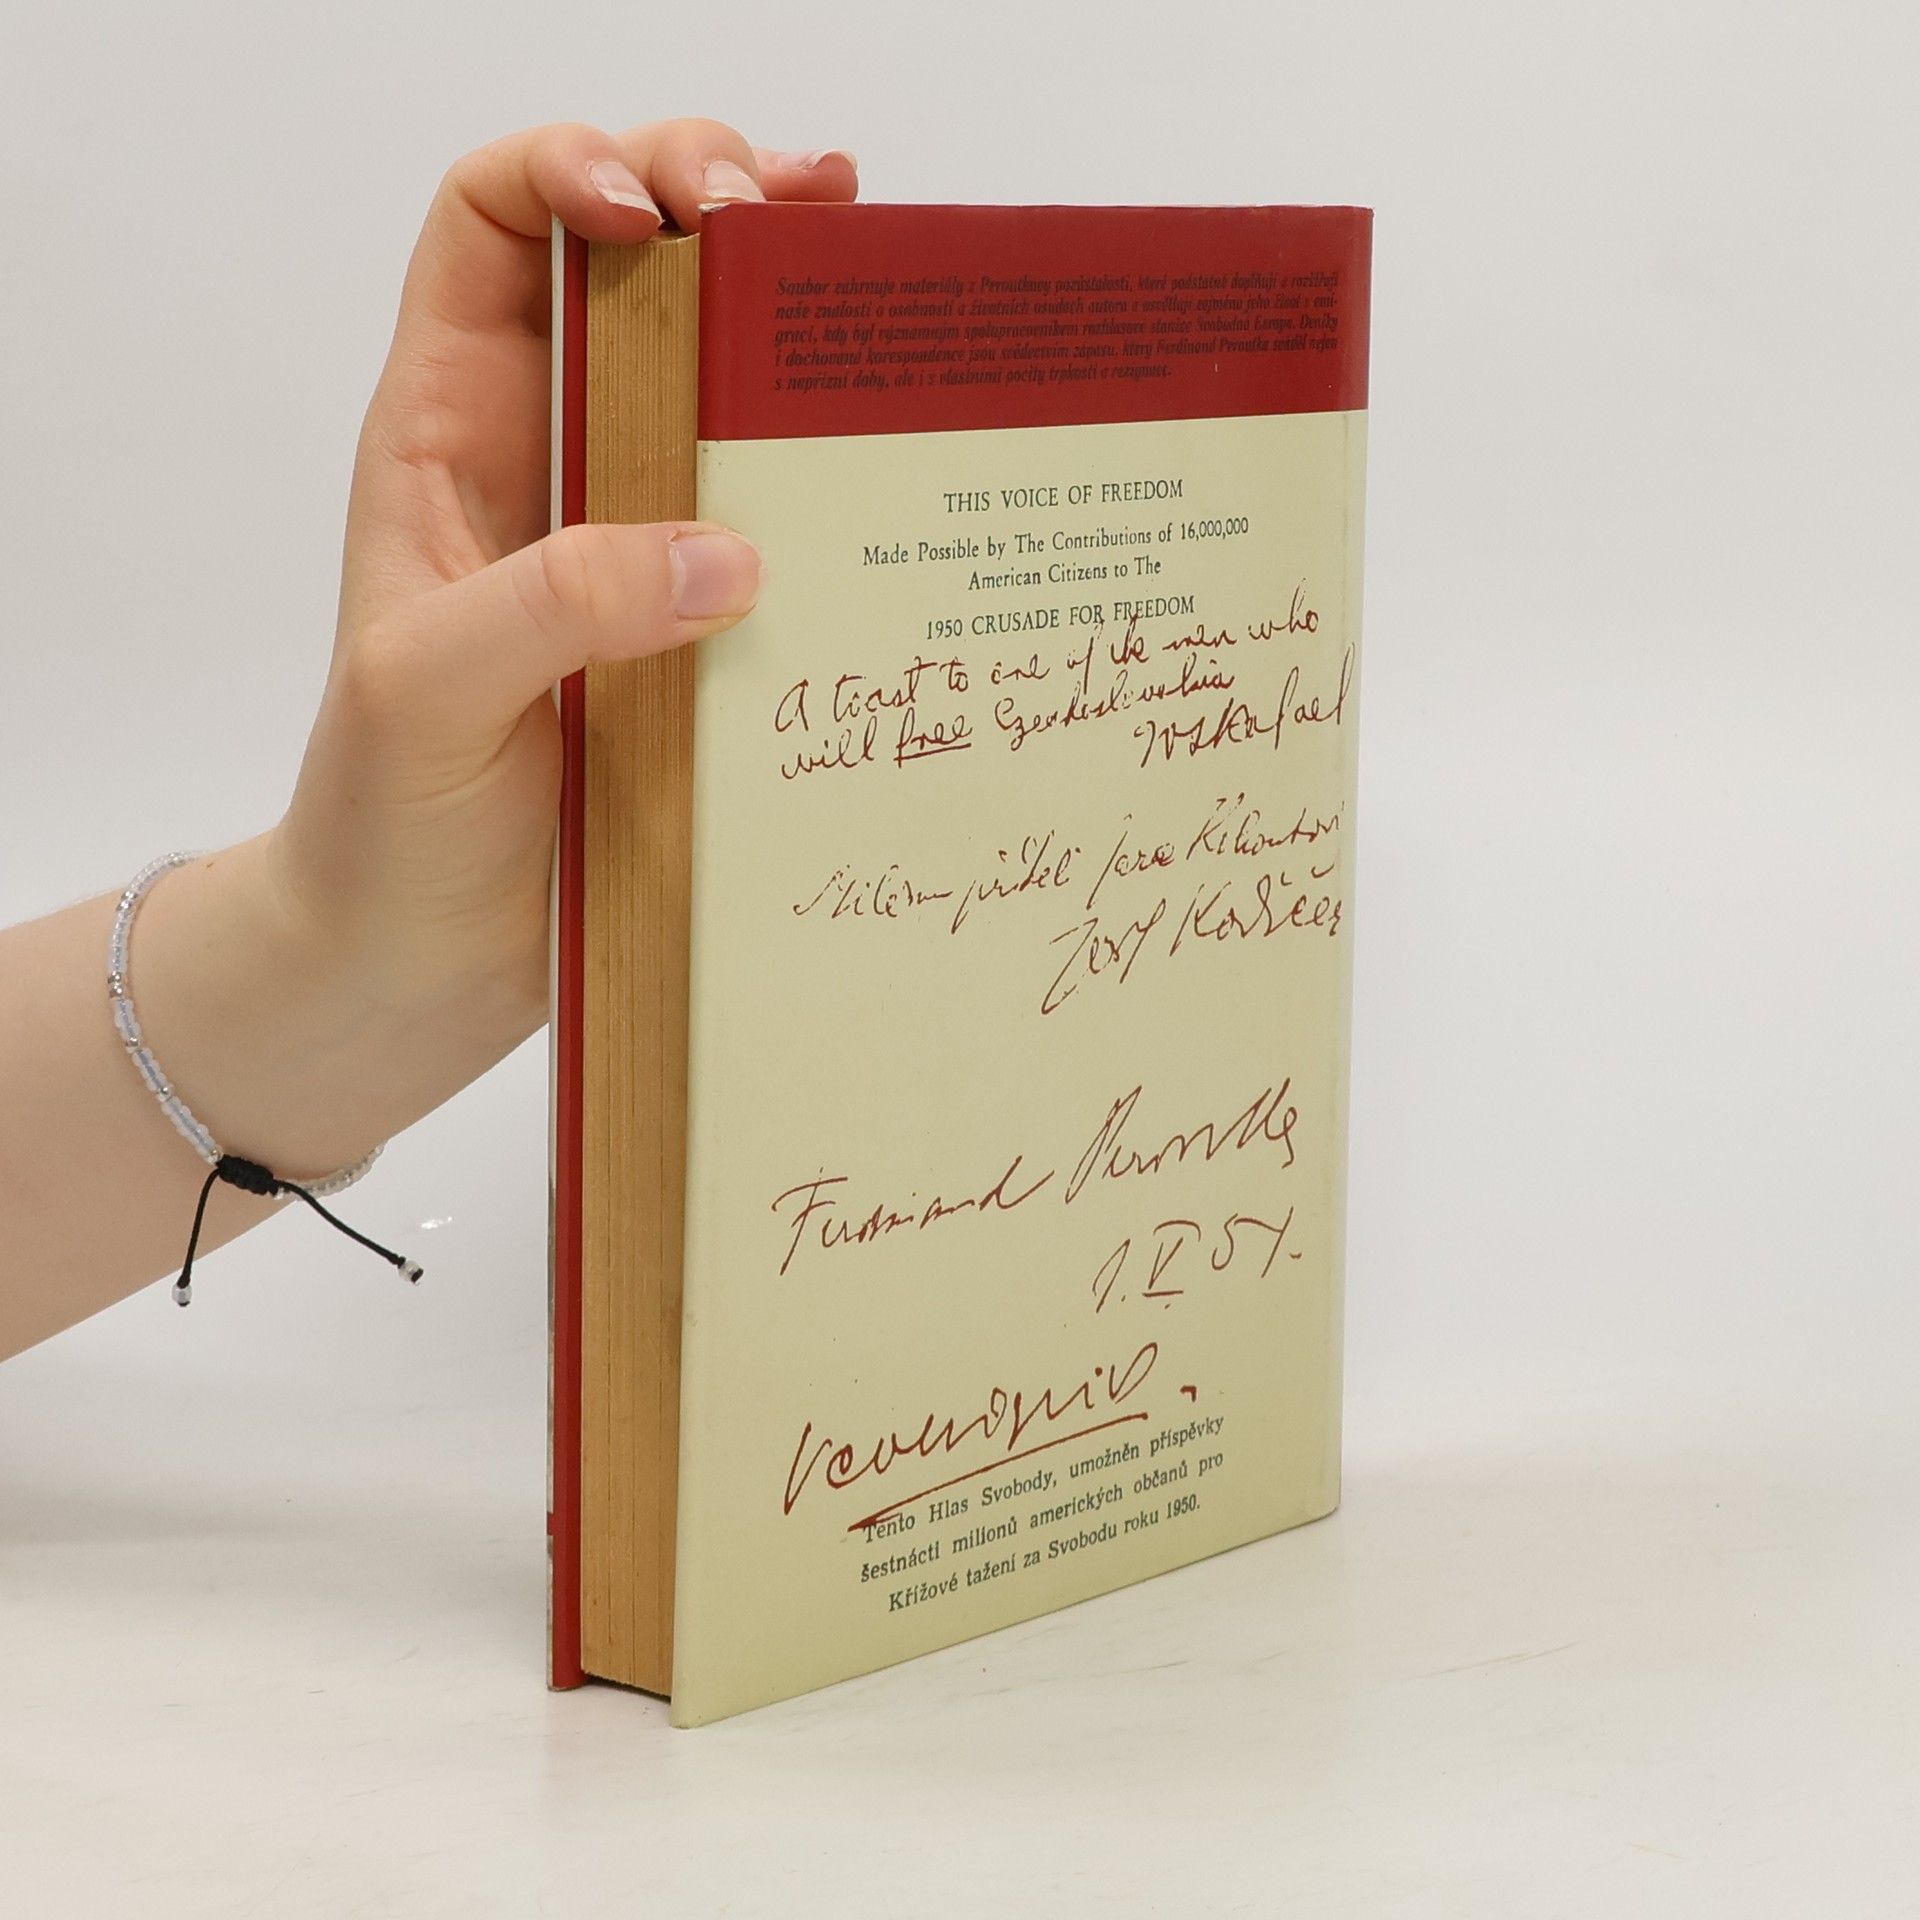 Soubor zahrnuje materiály z Peroutkovy pozůstalosti, které podstatně doplňují a rozšiřují
naše znalosti o osobnosti a životních osudech autora a osvětlují zejména jeho život v emi-
graci, kdy byl významným spolupracovníkem rozhlasové stanice Svobodná Evropa. Deníky
i dochovaná korespondence jsou svědectvím zápasu, který Ferdinand Peroutka sváděl nejen
s nepřízní doby, ale i s vlastními pocity trpkosti a rezignace.
THIS VOICE OF FREEDOM
Made Possible by The Contributions of 16,000,000
American Citizens to The
1950 CRUSADE FOR FREEDOM
A toast to one of the men who
will free Czechoslovakia
Milému příteli
Josef
Ferdinand Peroutka
1. V. 51.
Tento Hlas Svobody, umožněn příspěvky
šestnácti milionů amerických občanů pro
Křížové tažení za Svobodu roku 1950.